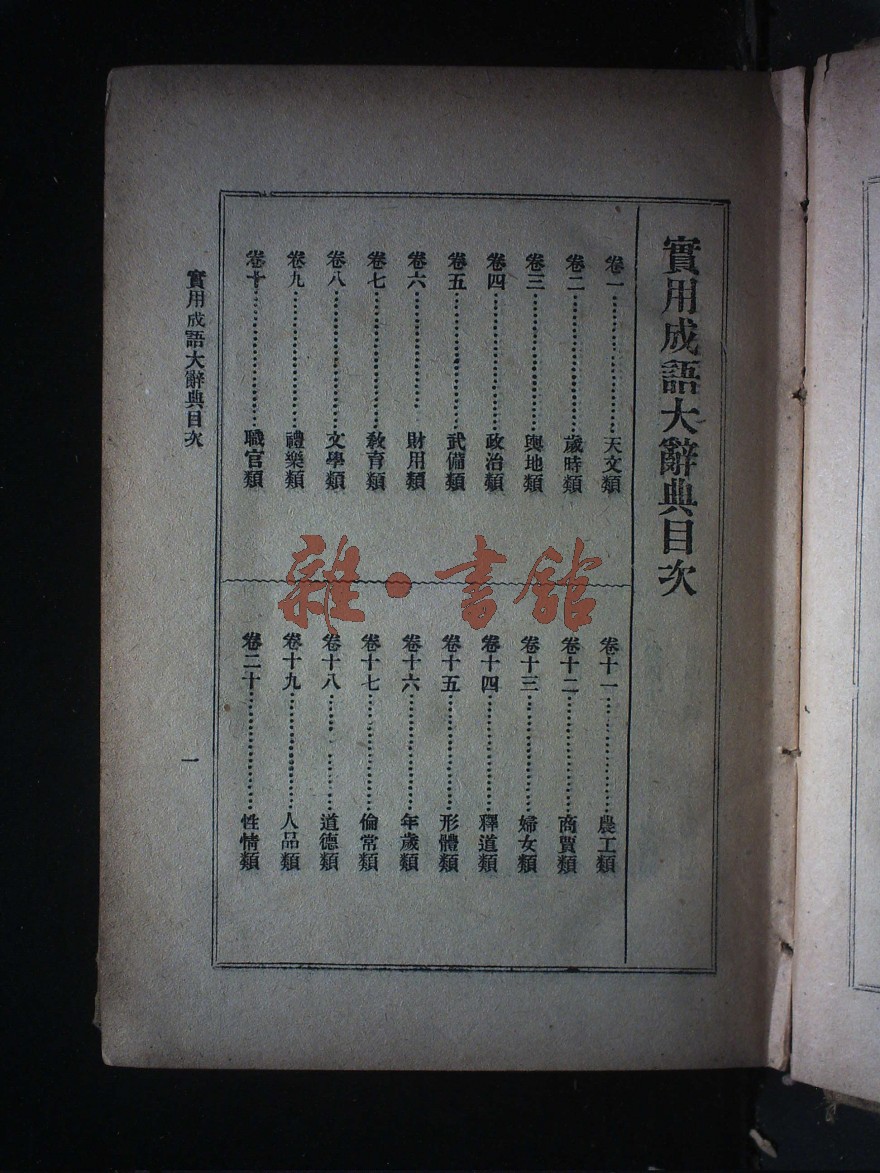 實用成語大辭典目次
卷一…………………天文類
卷二…………………歲時類
卷三…………………輿地類
卷四…………………政治類
卷五…………………武備類
卷六…………………財用類
卷七…………………教育類
卷八…………………文學類
卷九…………………禮樂類
卷十…………………職官類
卷十一………………農工類
卷十二………………商賈類
卷十三………………婦女類
卷十四………………釋道類
卷十五………………形體類
卷十六………………年歲類
卷十七………………倫常類
卷十八………………道德類
卷十九………………人品類
卷二十………………性情類
實用成語大辭典目次
一
雜·書館